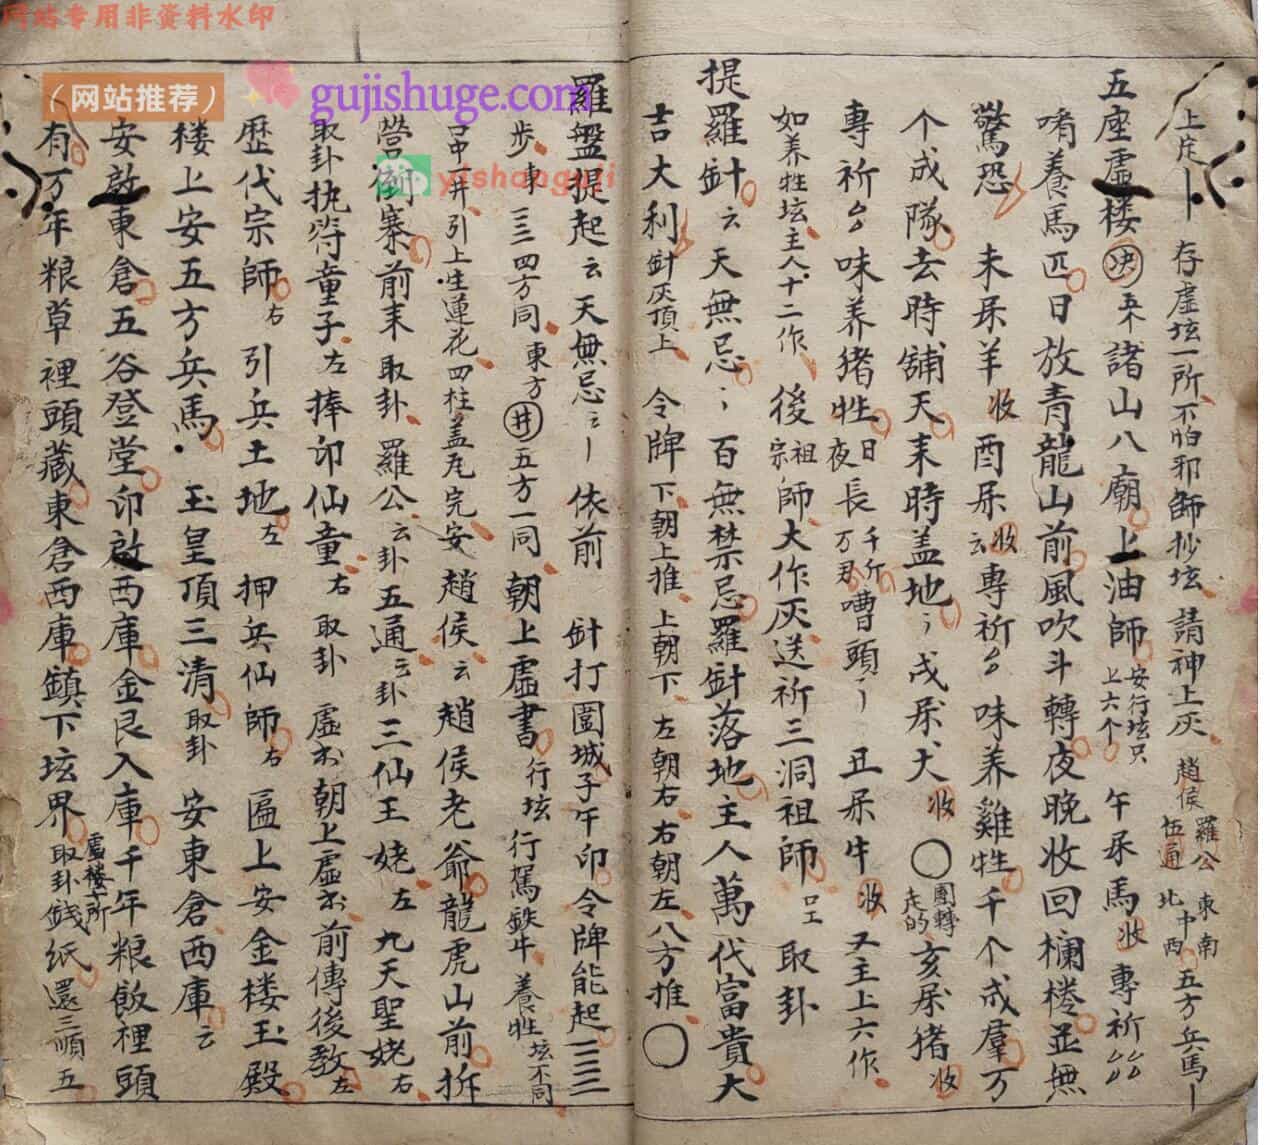 网站专用非资料水印
（网站推荐）
gujishuge.com
yishanguji
存虚坛一所不怕邪師抄坛請神上灰 趙侯 羅公 伍通 東南 北中西 五方兵馬
五座虚楼 决 諸山八廟上油師 安行坛只上六个 午屎馬 收 專祈
養馬匹日放青龍山前風吹斗轉夜晚收回欄棬並無
驚恐 未屎羊 收 酉屎 收 云專祈 味养雞牲千个成羣万
个成隊去時舖天耒時盖地 戌屎犬 收 團轉走的 亥屎猪 收
專祈 味养猪牲 日夜長 千斤万 嘈頭 丑屎牛 收 又主上六作
如养牲坛主人十二作 後 祖宗 師大作灰送祈三洞祖師 取卦
提羅針 云 天無忌 百無禁忌羅針落地主人萬代富貴大
吉大利 針灰頂上 令牌 下朝上推 上朝下 左朝右 右朝左 八方推
羅盤提起 云 天無忌 云 依前 針打圍城子午印令牌能起
步東 三三 四方同 東方 井 五方一同 朝上虚書 行坛 行駕鉄牛 養牲坛不同
井引上生蓮花四柱盖瓦完安 趙侯 云 趙侯老爺龍虎山前拆
營倒寨前耒 取卦 羅公 云卦 五通 云卦 三仙王姥 左 九天聖姥 右
取卦 执符童子 左 捧印仙童 右 取卦 虚 朝上虚 前傳後教 左
歷代宗師 右 引兵土地 左 押兵仙師 右 匾上安金楼玉殿
楼上安五方兵馬 玉皇頂三清 取卦 安東倉西庫 云
安啟東倉五谷登堂印啟西庫金艮入庫千年粮飯裡頭
有万年粮草裡頭藏東倉西庫鎮下坛界 取卦 虚楼一所 錢紙還三順五